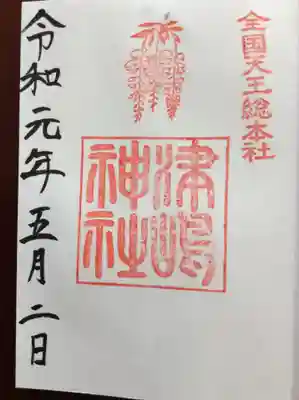 全国天王総本社
津嶋
神社
令和元年五月二日